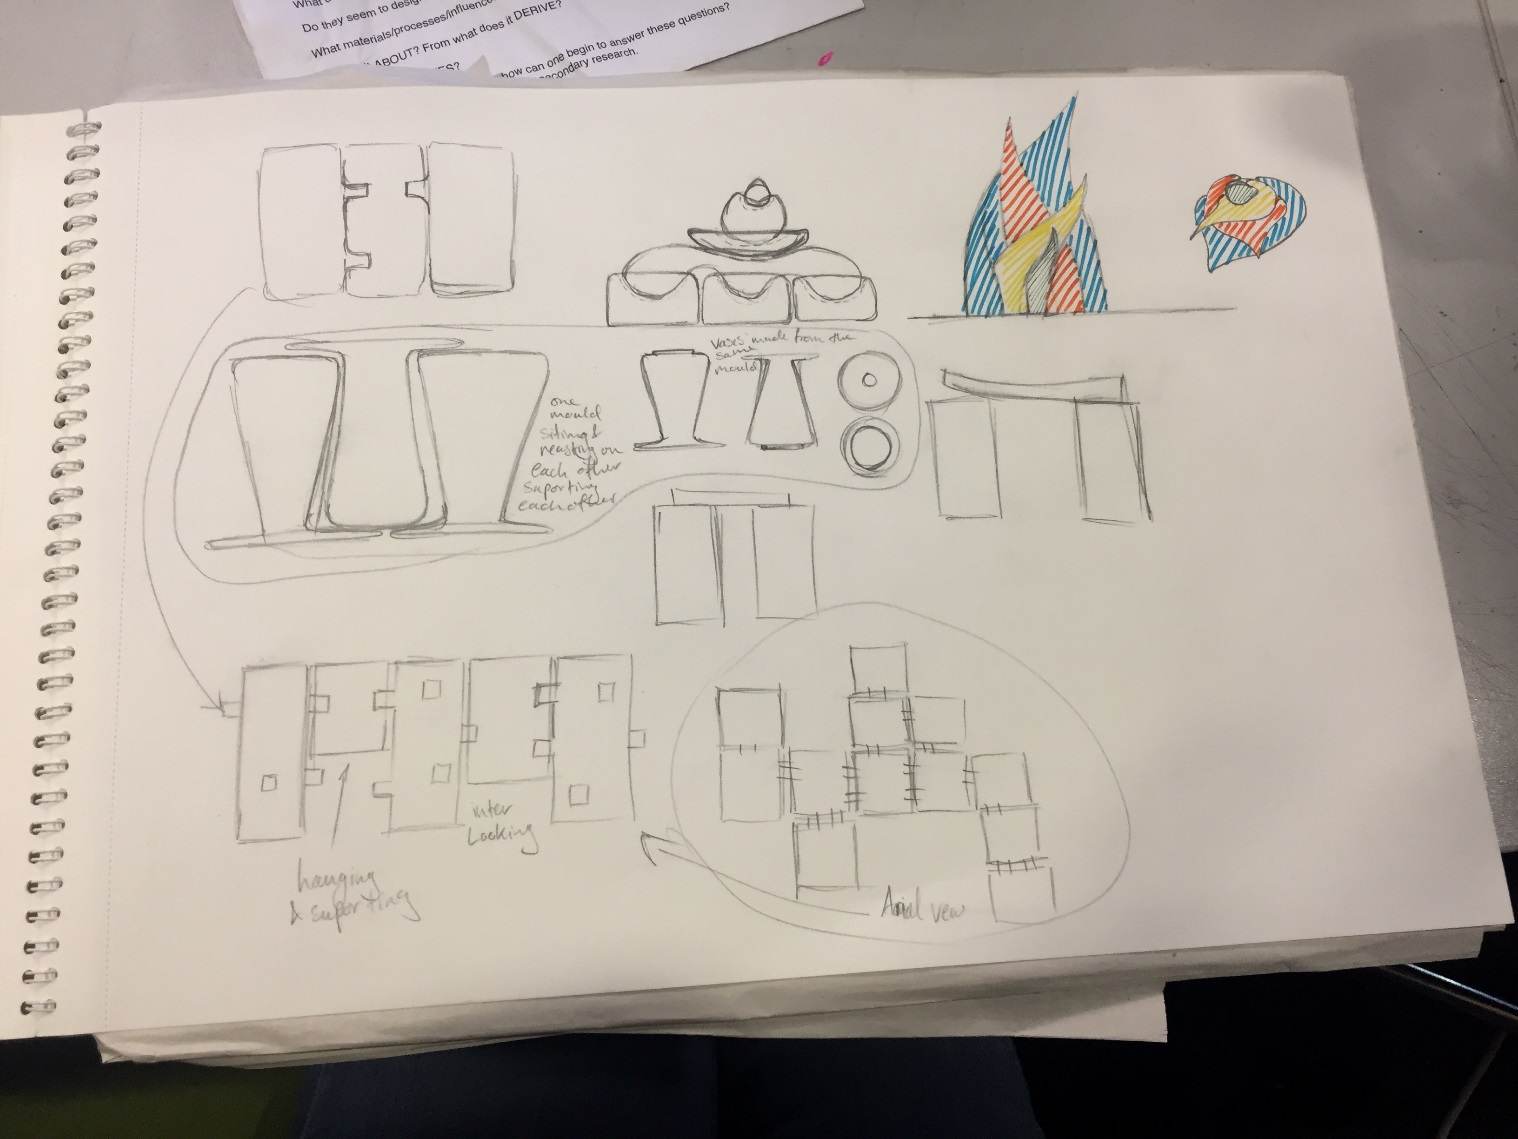 Do they seem to desig
What materials/processes/influence
ABOUT? From what does it DERIVE?
how can one begin to answer these questions?
condary research.
vases made from the
same
mould
one
mould
sitting &
reasting on
each other
suporting
each other
inter
Looking
hanging
& suporting
Arial vew